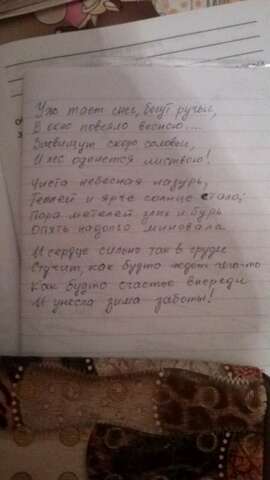 Уж тает снег, бегут ручьи,
В окно повеяло весною....
Засвищут скоро соловьи,
И лес оденется листвою!
Чиста небесная лазурь,
Теплей и ярче солнце стало;
Пора метелей злых и бурь
Опять надолго миновала.
И сердце сильно так в груди
Стучит, как будто ждет чего-то
Как будто счастье впереди
И унесла зима заботы!